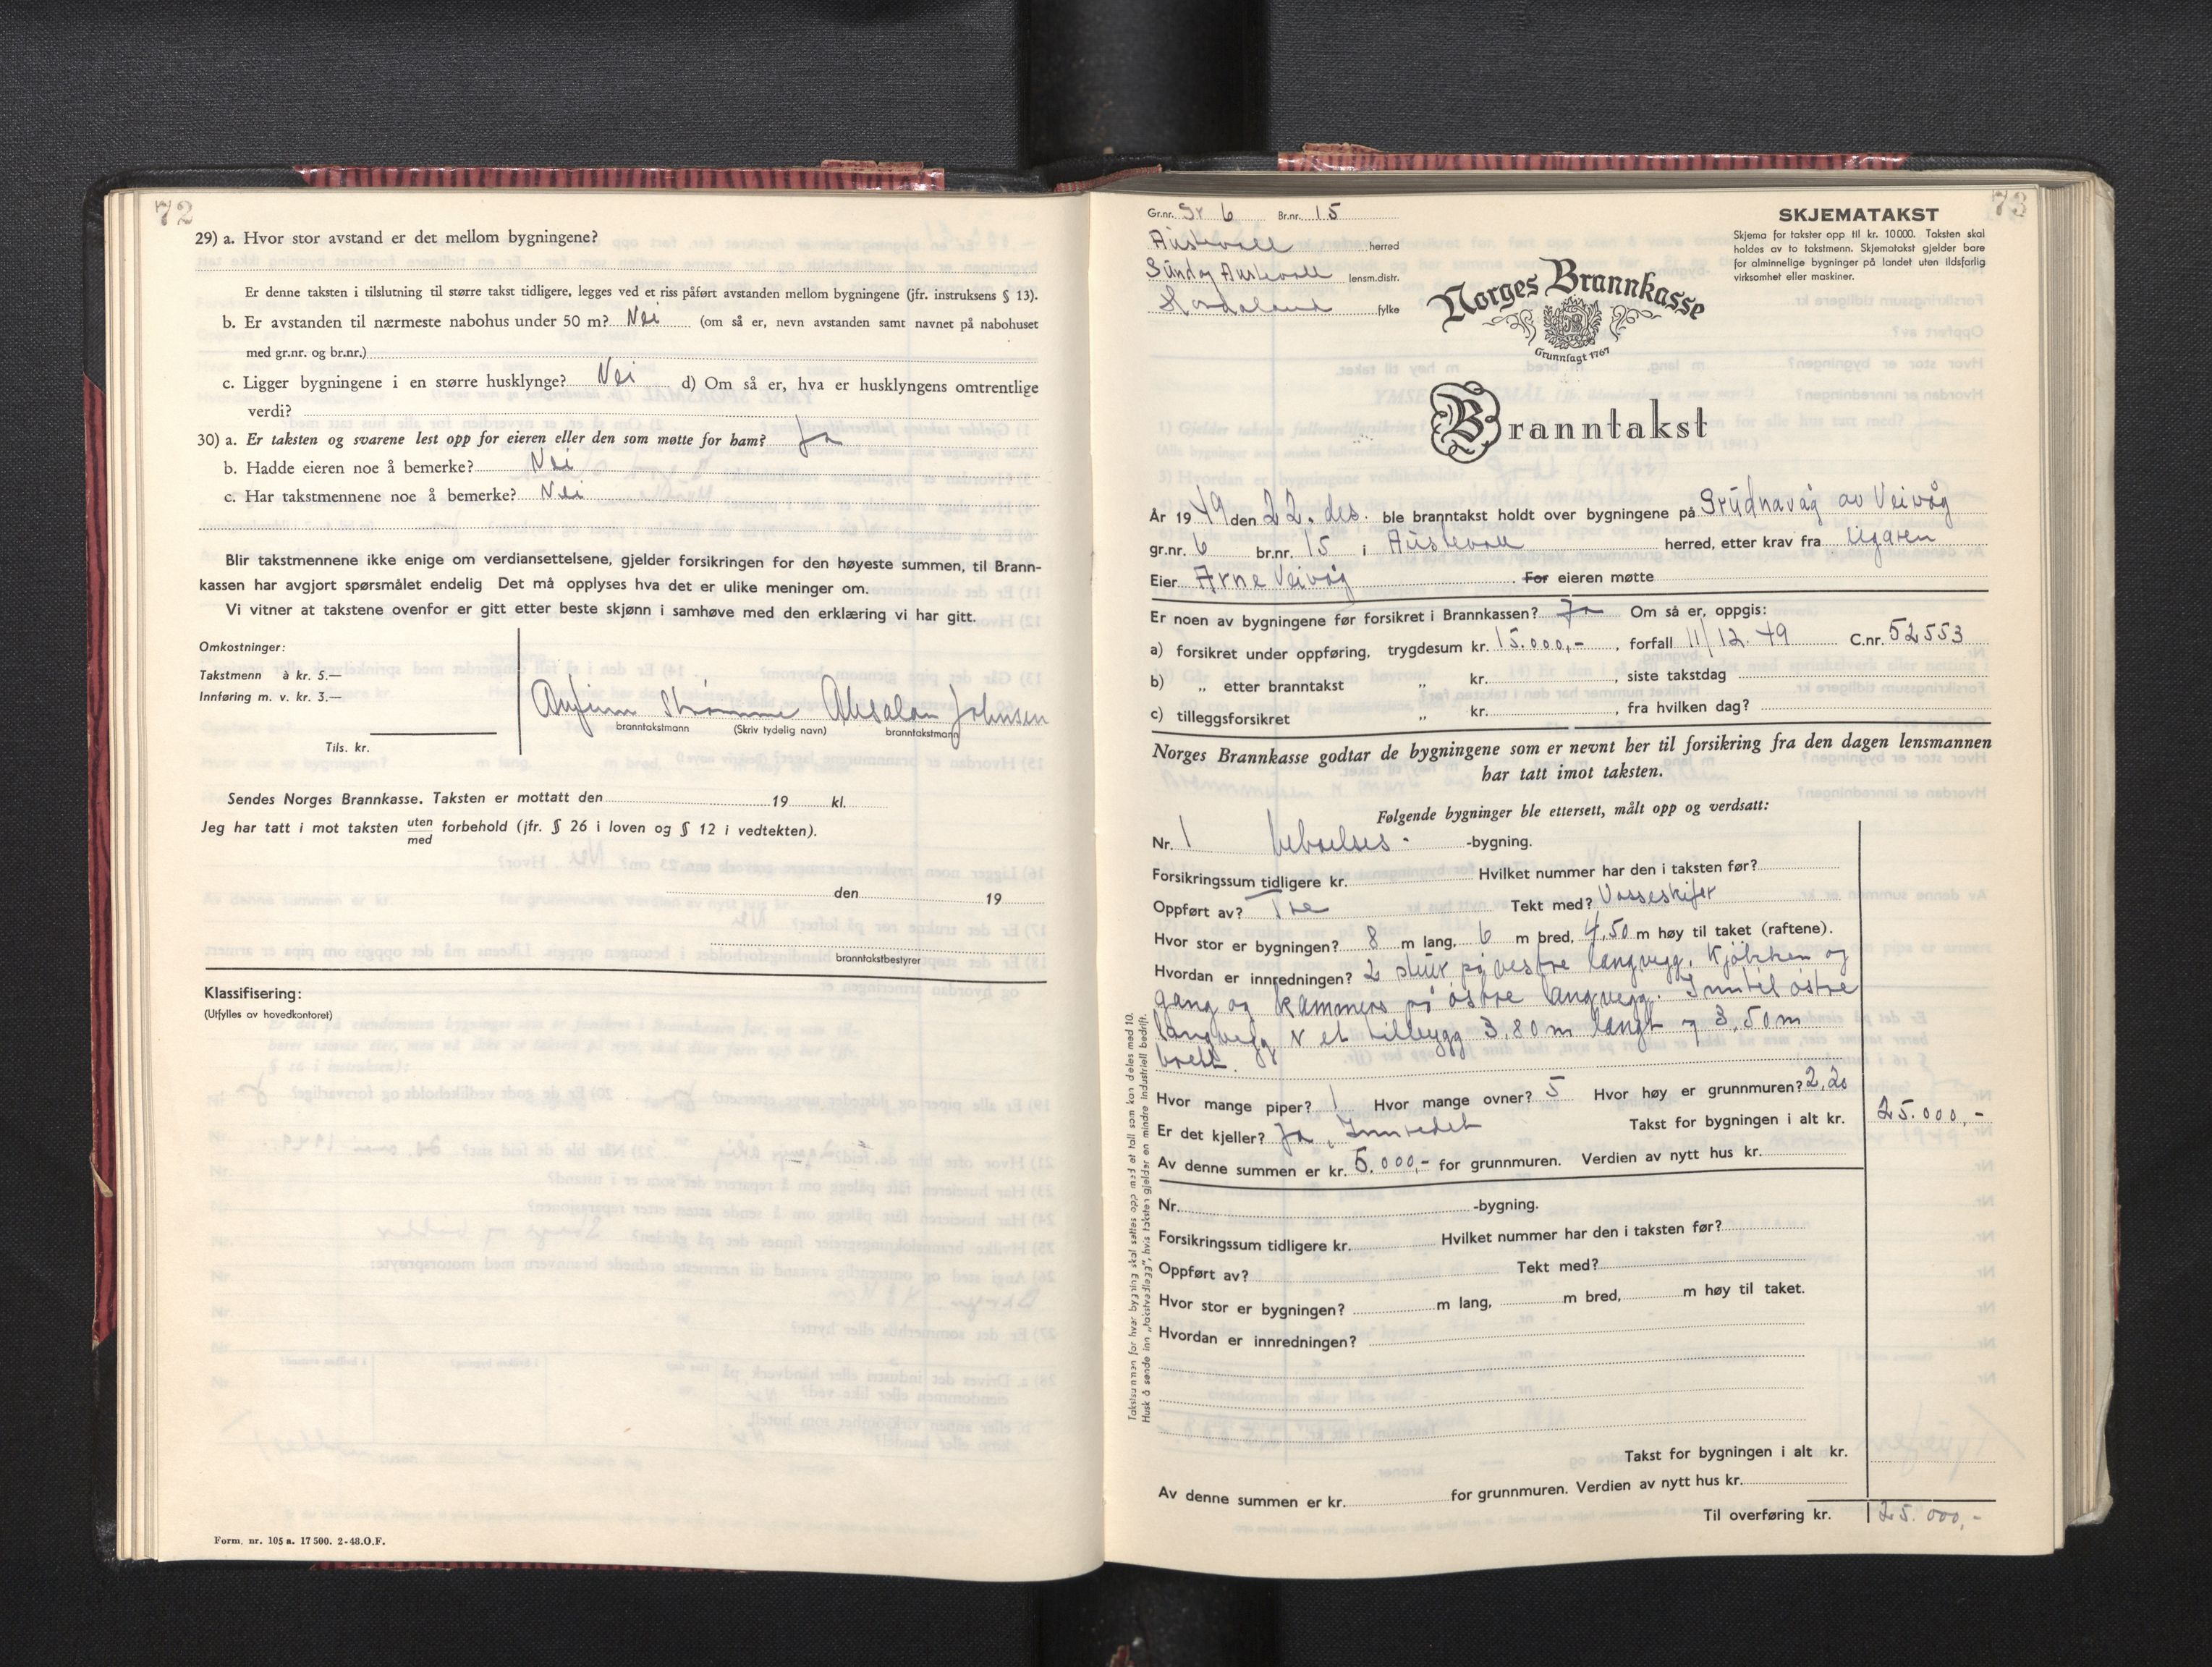 72
29) a. Hvor stor avstand er det mellom bygningene?
Er denne taksten i tilslutning til større takst tidligere, legges ved et riss påført avstanden mellom bygningene (jfr. instruksens § 13).
b. Er avstanden til nærmeste nabohus under 50 m? Nei (om så er, nevn avstanden samt navnet på nabohuset
med gr.nr. og br.nr.)
c. Ligger bygningene i en større husklynge? Nei d) Om så er, hva er husklyngens omtrentlige
verdi?
30) a. Er taksten og svarene lest opp for eieren eller den som møtte for ham? Ja
b. Hadde eieren noe å bemerke? Nei
c. Har takstmennene noe å bemerke? Nei
Blir takstmennene ikke enige om verdiansettelsene, gjelder forsikringen for den høyeste summen, til Brann-
kassen har avgjort spørsmålet endelig Det må opplyses hva det er ulike meninger om.
Vi vitner at takstene ovenfor er gitt etter beste skjønn i samhøve med den erklæring vi har gitt.
Omkostninger:
Takstmenn à kr. 5.—
Innføring m. v. kr. 3.—
Tils. kr.
Anfinn Strømme Absalon Johnsen
branntakstmann (Skriv tydelig navn) branntakstmann
Sendes Norges Brannkasse. Taksten er mottatt den 19 kl.
Jeg har tatt i mot taksten uten
med forbehold (jfr. § 26 i loven og § 12 i vedtekten).
den 19
branntakstbestyrer
Klassifisering:
(Utfylles av hovedkontoret)
Form. nr. 105 a. 17 500. 2-48. O.F.
73
Gr.nr. Gr 6 Br.nr. 15
Austevoll herred
Sund og Austevoll lensm.distr.
Hordaland fylke
SKJEMATAKST
Skjema for takster opp til kr. 10000. Taksten skal
holdes av to takstmenn. Skjematakst gjelder bare
for alminnelige bygninger på landet uten ildsfarlig
virksomhet eller maskiner.
Norges Brannkasse
Grunnlagt 1767
Branntakst
År 1949 den 22. des. ble branntakst holdt over bygningene på Grudnavåg av Veivåg
gr.nr. 6 br.nr. 15 i Austevoll herred, etter krav fra eigaren
Eier Arne Veivåg For eieren møtte
Er noen av bygningene før forsikret i Brannkassen? Ja Om så er, oppgis:
a) forsikret under oppføring, trygdesum kr. 15.000,- , forfall 11/12.49 C.nr. 52553
b) „ etter branntakst „ kr. , siste takstdag
c) tilleggsforsikret „ kr. , fra hvilken dag?
Norges Brannkasse godtar de bygningene som er nevnt her til forsikring fra den dagen lensmannen
har tatt imot taksten.
Følgende bygninger ble ettersett, målt opp og verdsatt:
Nr. 1 beboelses- -bygning.
Forsikringssum tidligere kr. Hvilket nummer har den i taksten før?
Oppført av? Tre Tekt med? Vosseskifer
Hvor stor er bygningen? 8 m lang, 6 m bred, 4,50 m høy til taket (raftene).
Hvordan er innredningen? 2 stuer på vestre langvegg. Kjökken og
gang og kammers på östre langvegg. Inntil östre
langvegg er et tilbygg 3,80 m langt og 3,50 m
bredt.
Hvor mange piper? 1 Hvor mange ovner? 5 Hvor høy er grunnmuren? 2,20
Er det kjeller? Ja, Innredet Takst for bygningen i alt kr. 25.000,-
Av denne summen er kr. 5.000,- for grunnmuren. Verdien av nytt hus kr.
Nr. -bygning.
Forsikringssum tidligere kr. Hvilket nummer har den i taksten før?
Oppført av? Tekt med?
Hvor stor er bygningen? m lang, m bred, m høy til taket.
Hvordan er innredningen?
Takst for bygningen i alt kr.
Av denne summen er kr. for grunnmuren. Verdien av nytt hus kr.
Til overføring kr. 25.000,-
Takstsummen for hver bygning skal settes opp med et tall som kan deles med 10.
Husk å sende inn „takstvedlegg”, hvis taksten gjelder en mindre industriell bedrift.